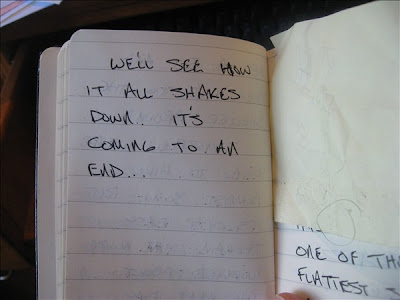 WE'LL SEE HOW
IT ALL SHAKES
DOWN.. IT'S
COMING TO AN
END...
ONE OF
FLATTEST